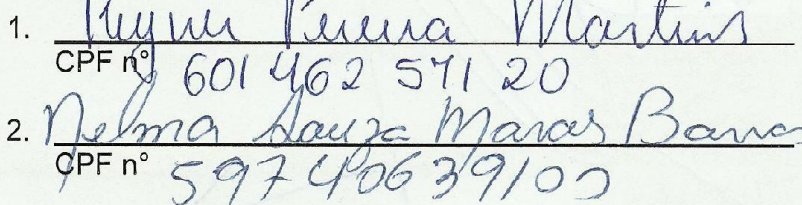 1. Pereira Martins
CPF nº 601 462 571 20
2. Nelma Souza Barros
CPF nº 59740639100